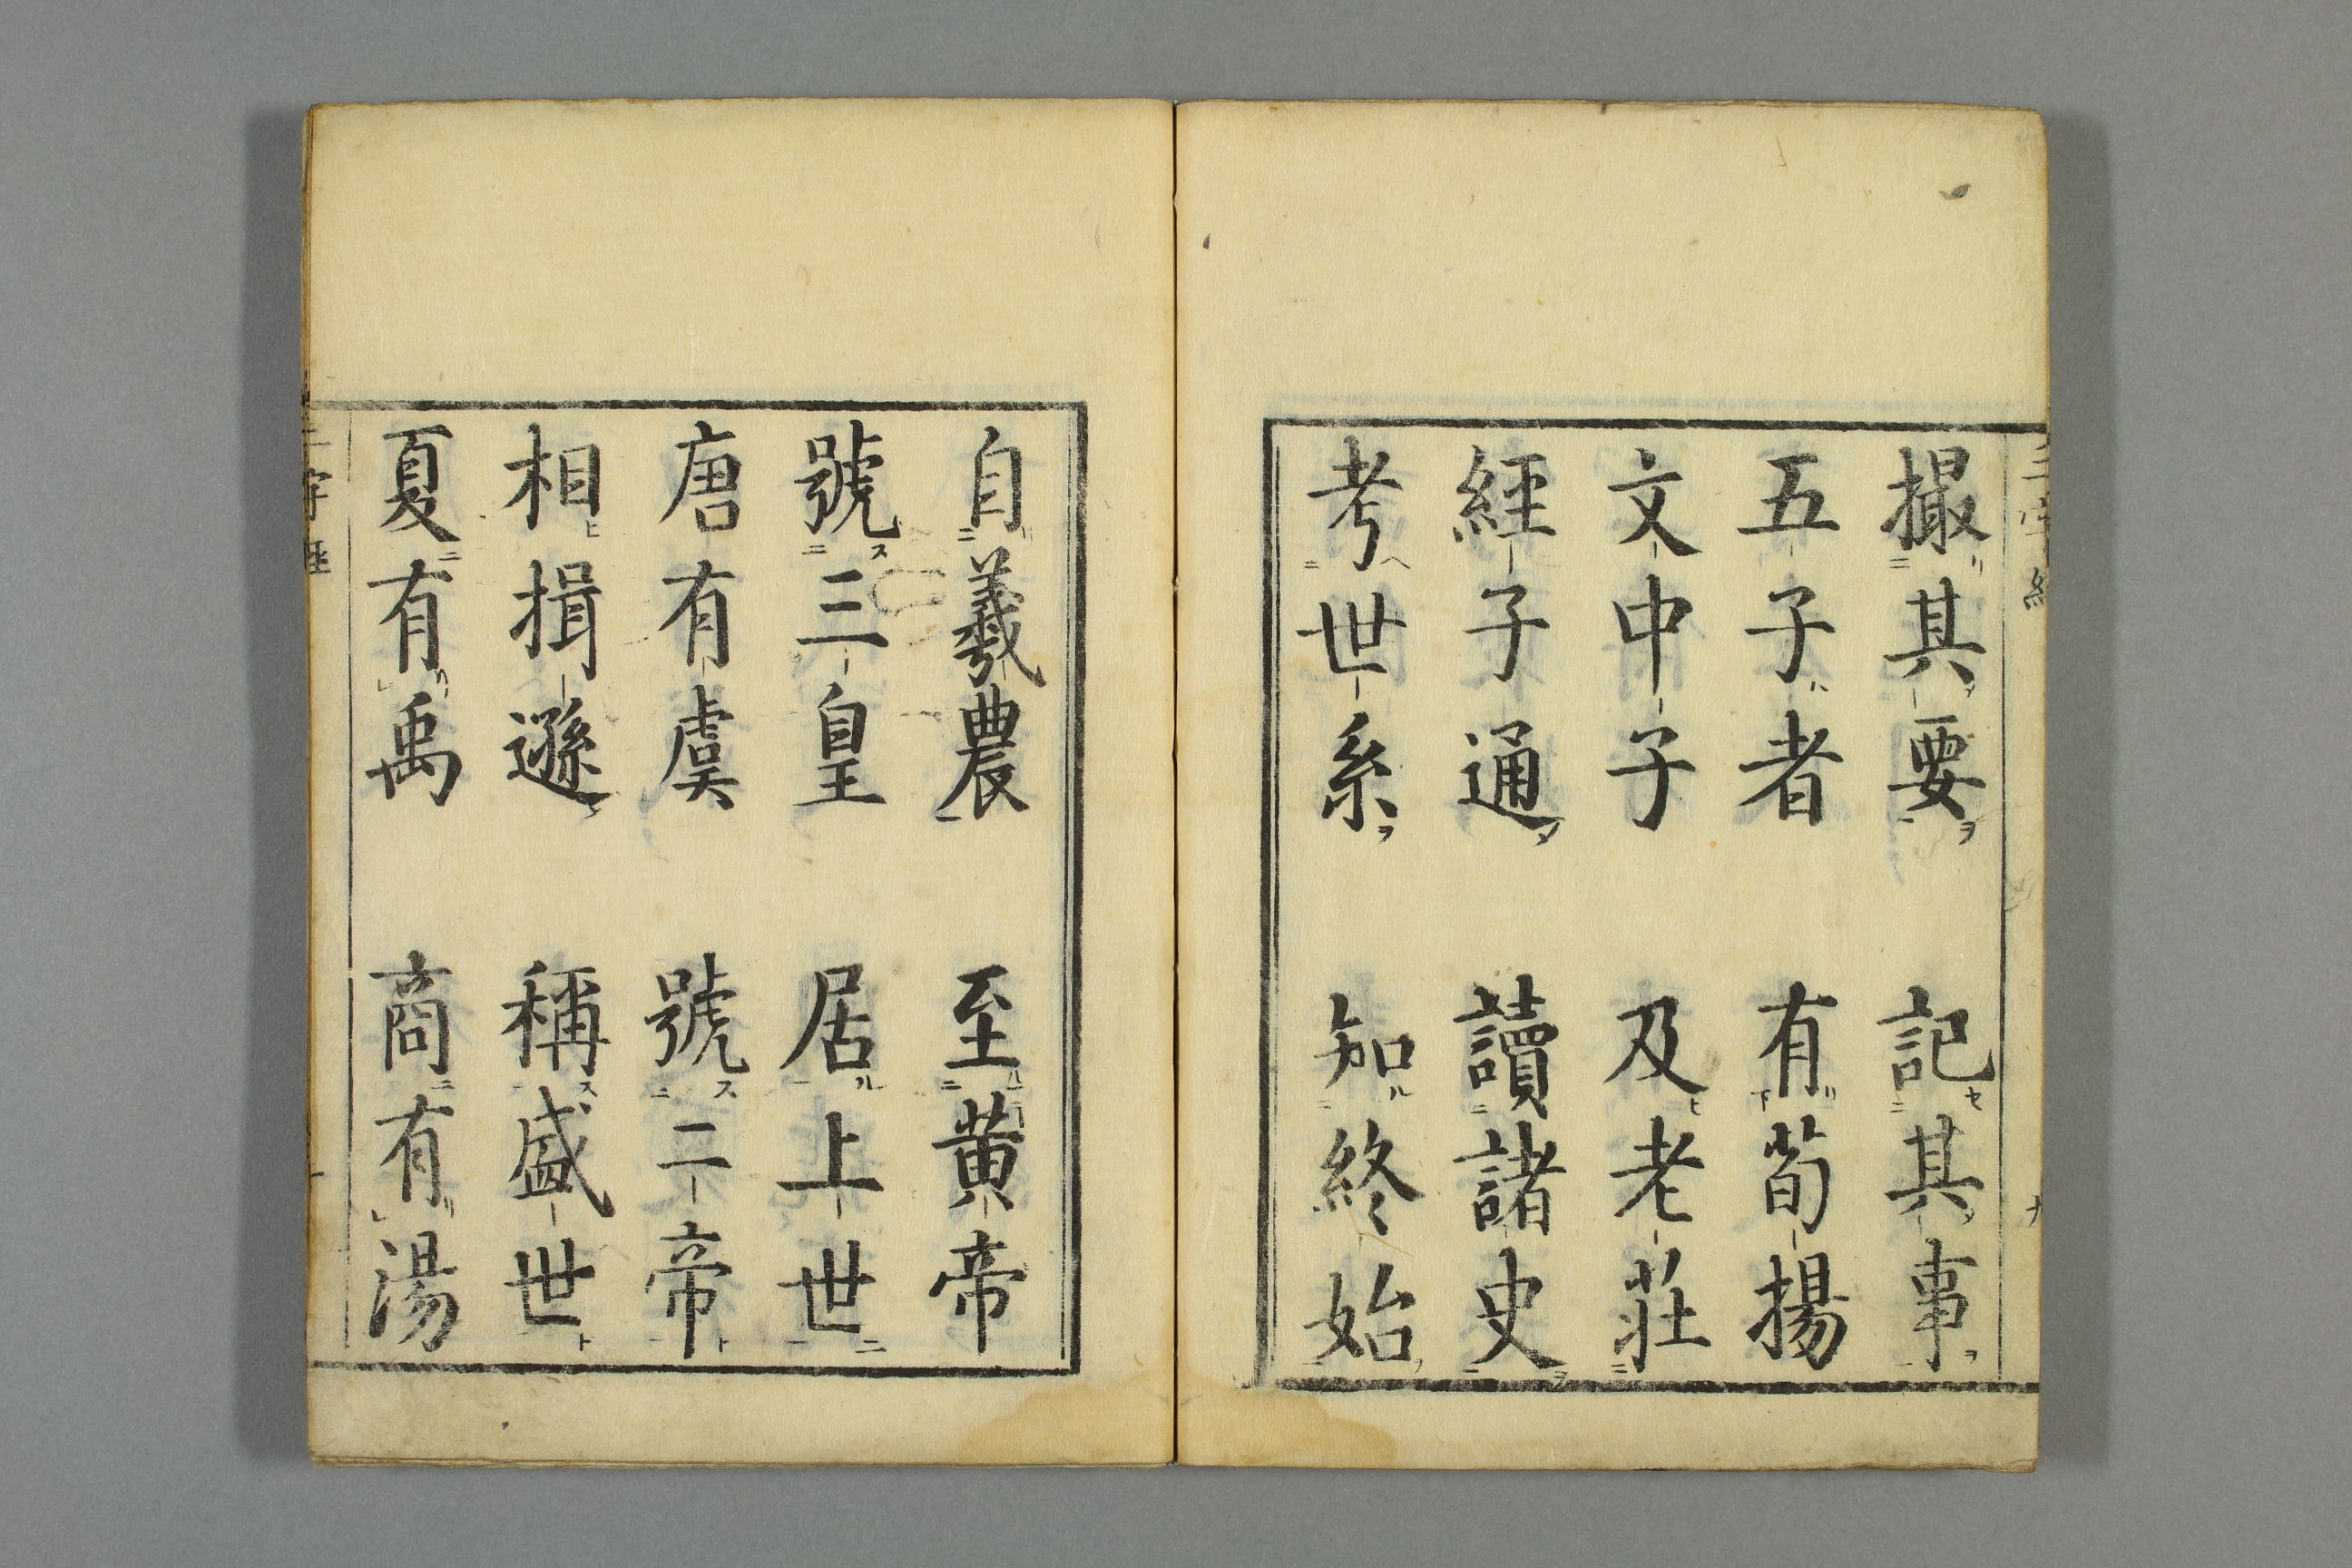 撮其要　記其事
五子者　有荀揚
文中子　及老莊
經子通　讀諸史
考世系　知終始
自羲農　至黄帝
號三皇　居上世
唐有虞　號二帝
相揖遜　稱盛世
夏有禹　商有湯